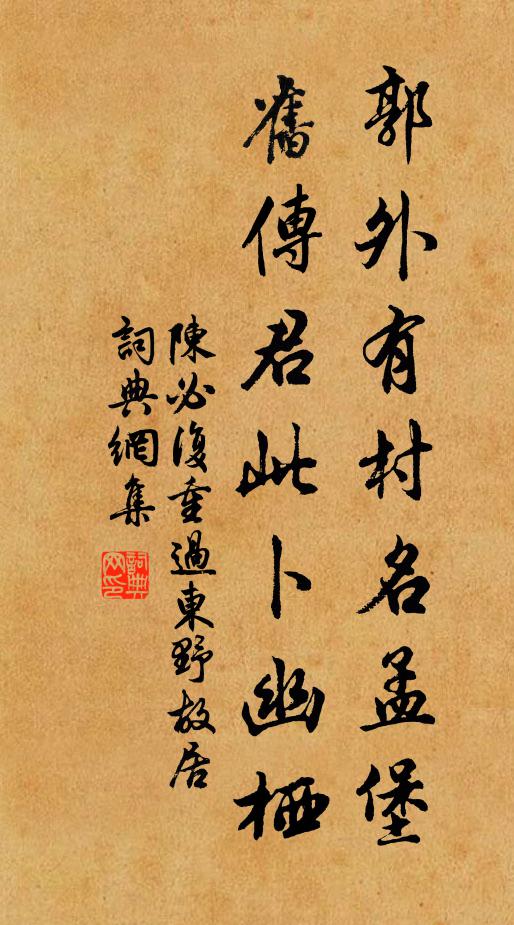 郭外有村名孟堡
舊傳君此卜幽栖
陳必復重過東野故居
詞典網集
詞典網印